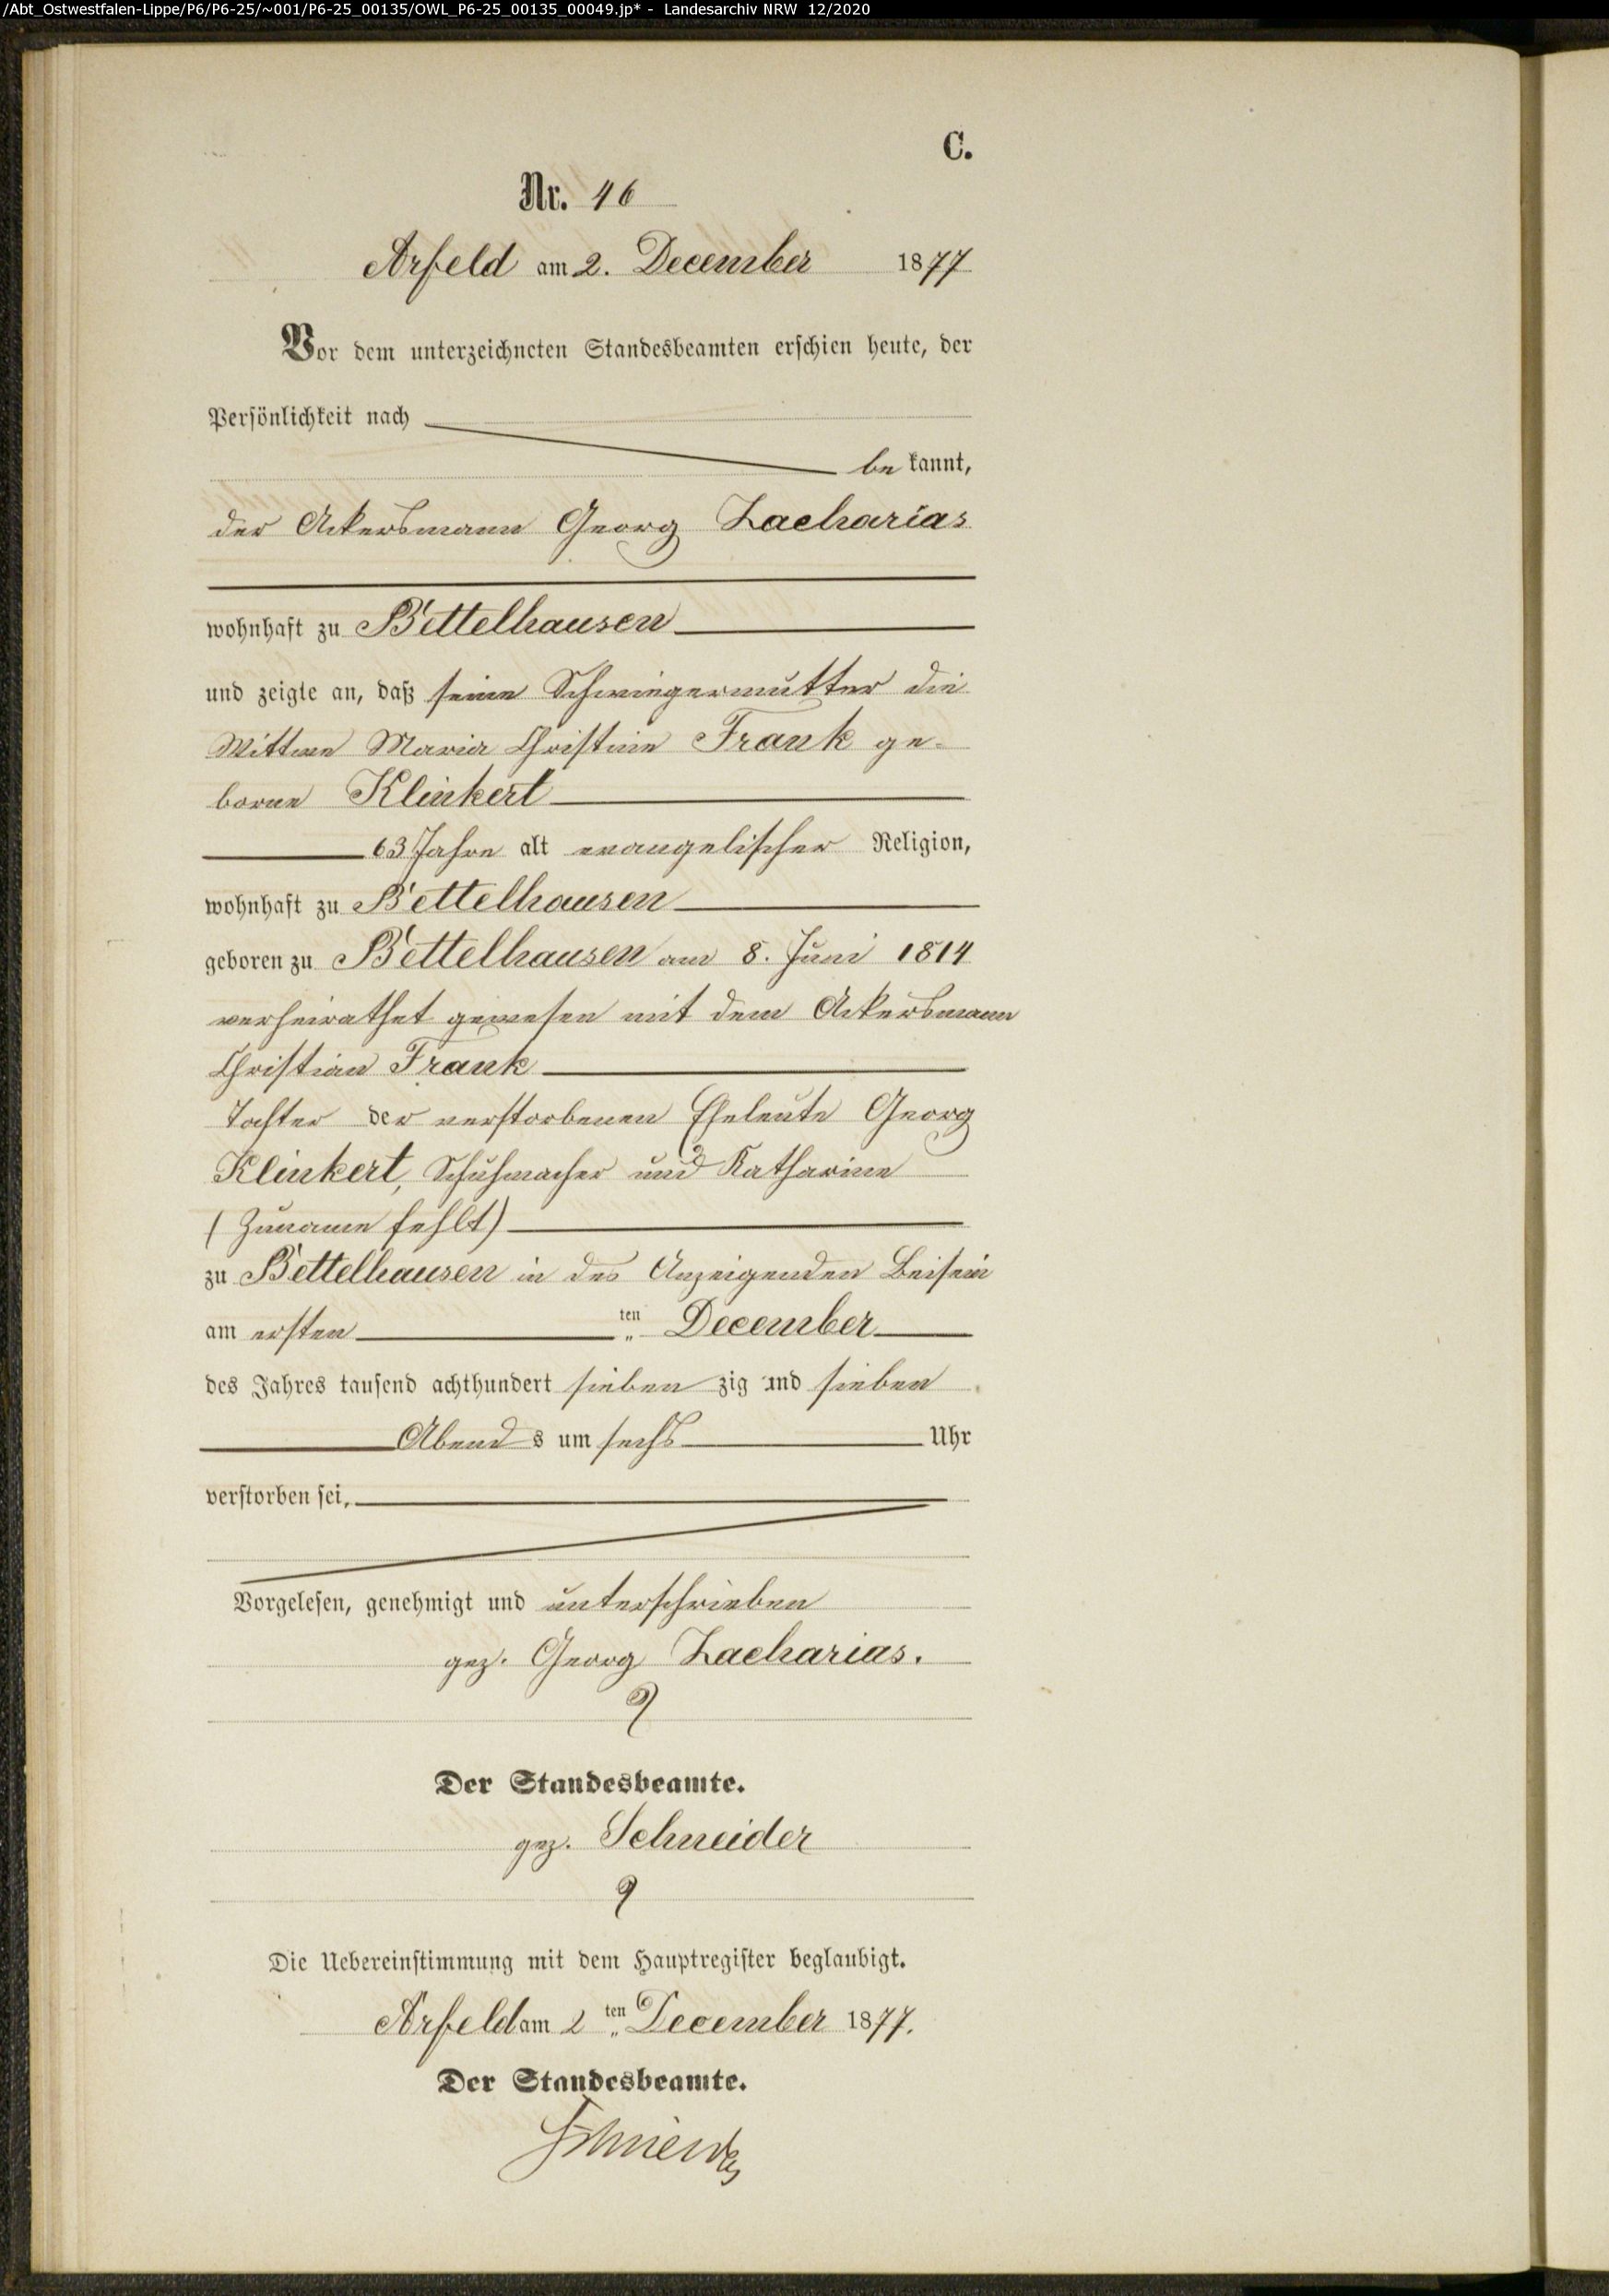 /Abt_Ostwestfalen-Lippe/P6/P6-25/~001/P6-25_00135/OWL_P6-25_00135_00049.jp* - Landesarchiv NRW 12/2020
C.
Nr. 46
Arfeld am 2. December 1877
Vor dem unterzeichneten Standesbeamten erschien heute, der
Persönlichkeit nach
be kannt,
der Ackersmann Georg Zacharias
wohnhaft zu Bettelhausen
und zeigte an, daß seine Schwiegermutter die
Wittwe Maria Christine Frank ge-
borne Klinkert
63 Jahre alt evangelischer Religion,
wohnhaft zu Bettelhausen
geboren zu Bettelhausen am 8. Juni 1814
verheirathet gewesen mit dem Ackersmann
Christian Frank
Tochter der verstorbenen Eheleute Georg
Klinkert, Schuhmacher und Katharine
(Zuname fehlt)
zu Bettelhausen in des Anzeigenden Beisein
am ersten ten December
des Jahres tausend achthundert sieben zig und sieben
Abend s um sechs Uhr
verstorben sei,
Vorgelesen, genehmigt und unterschrieben
gez. Georg Zacharias.
Der Standesbeamte.
gez. Schneider
Die Uebereinstimmung mit dem Hauptregister beglaubigt.
Arfeld am 2 ten December 1877.
Der Standesbeamte.
Schneider